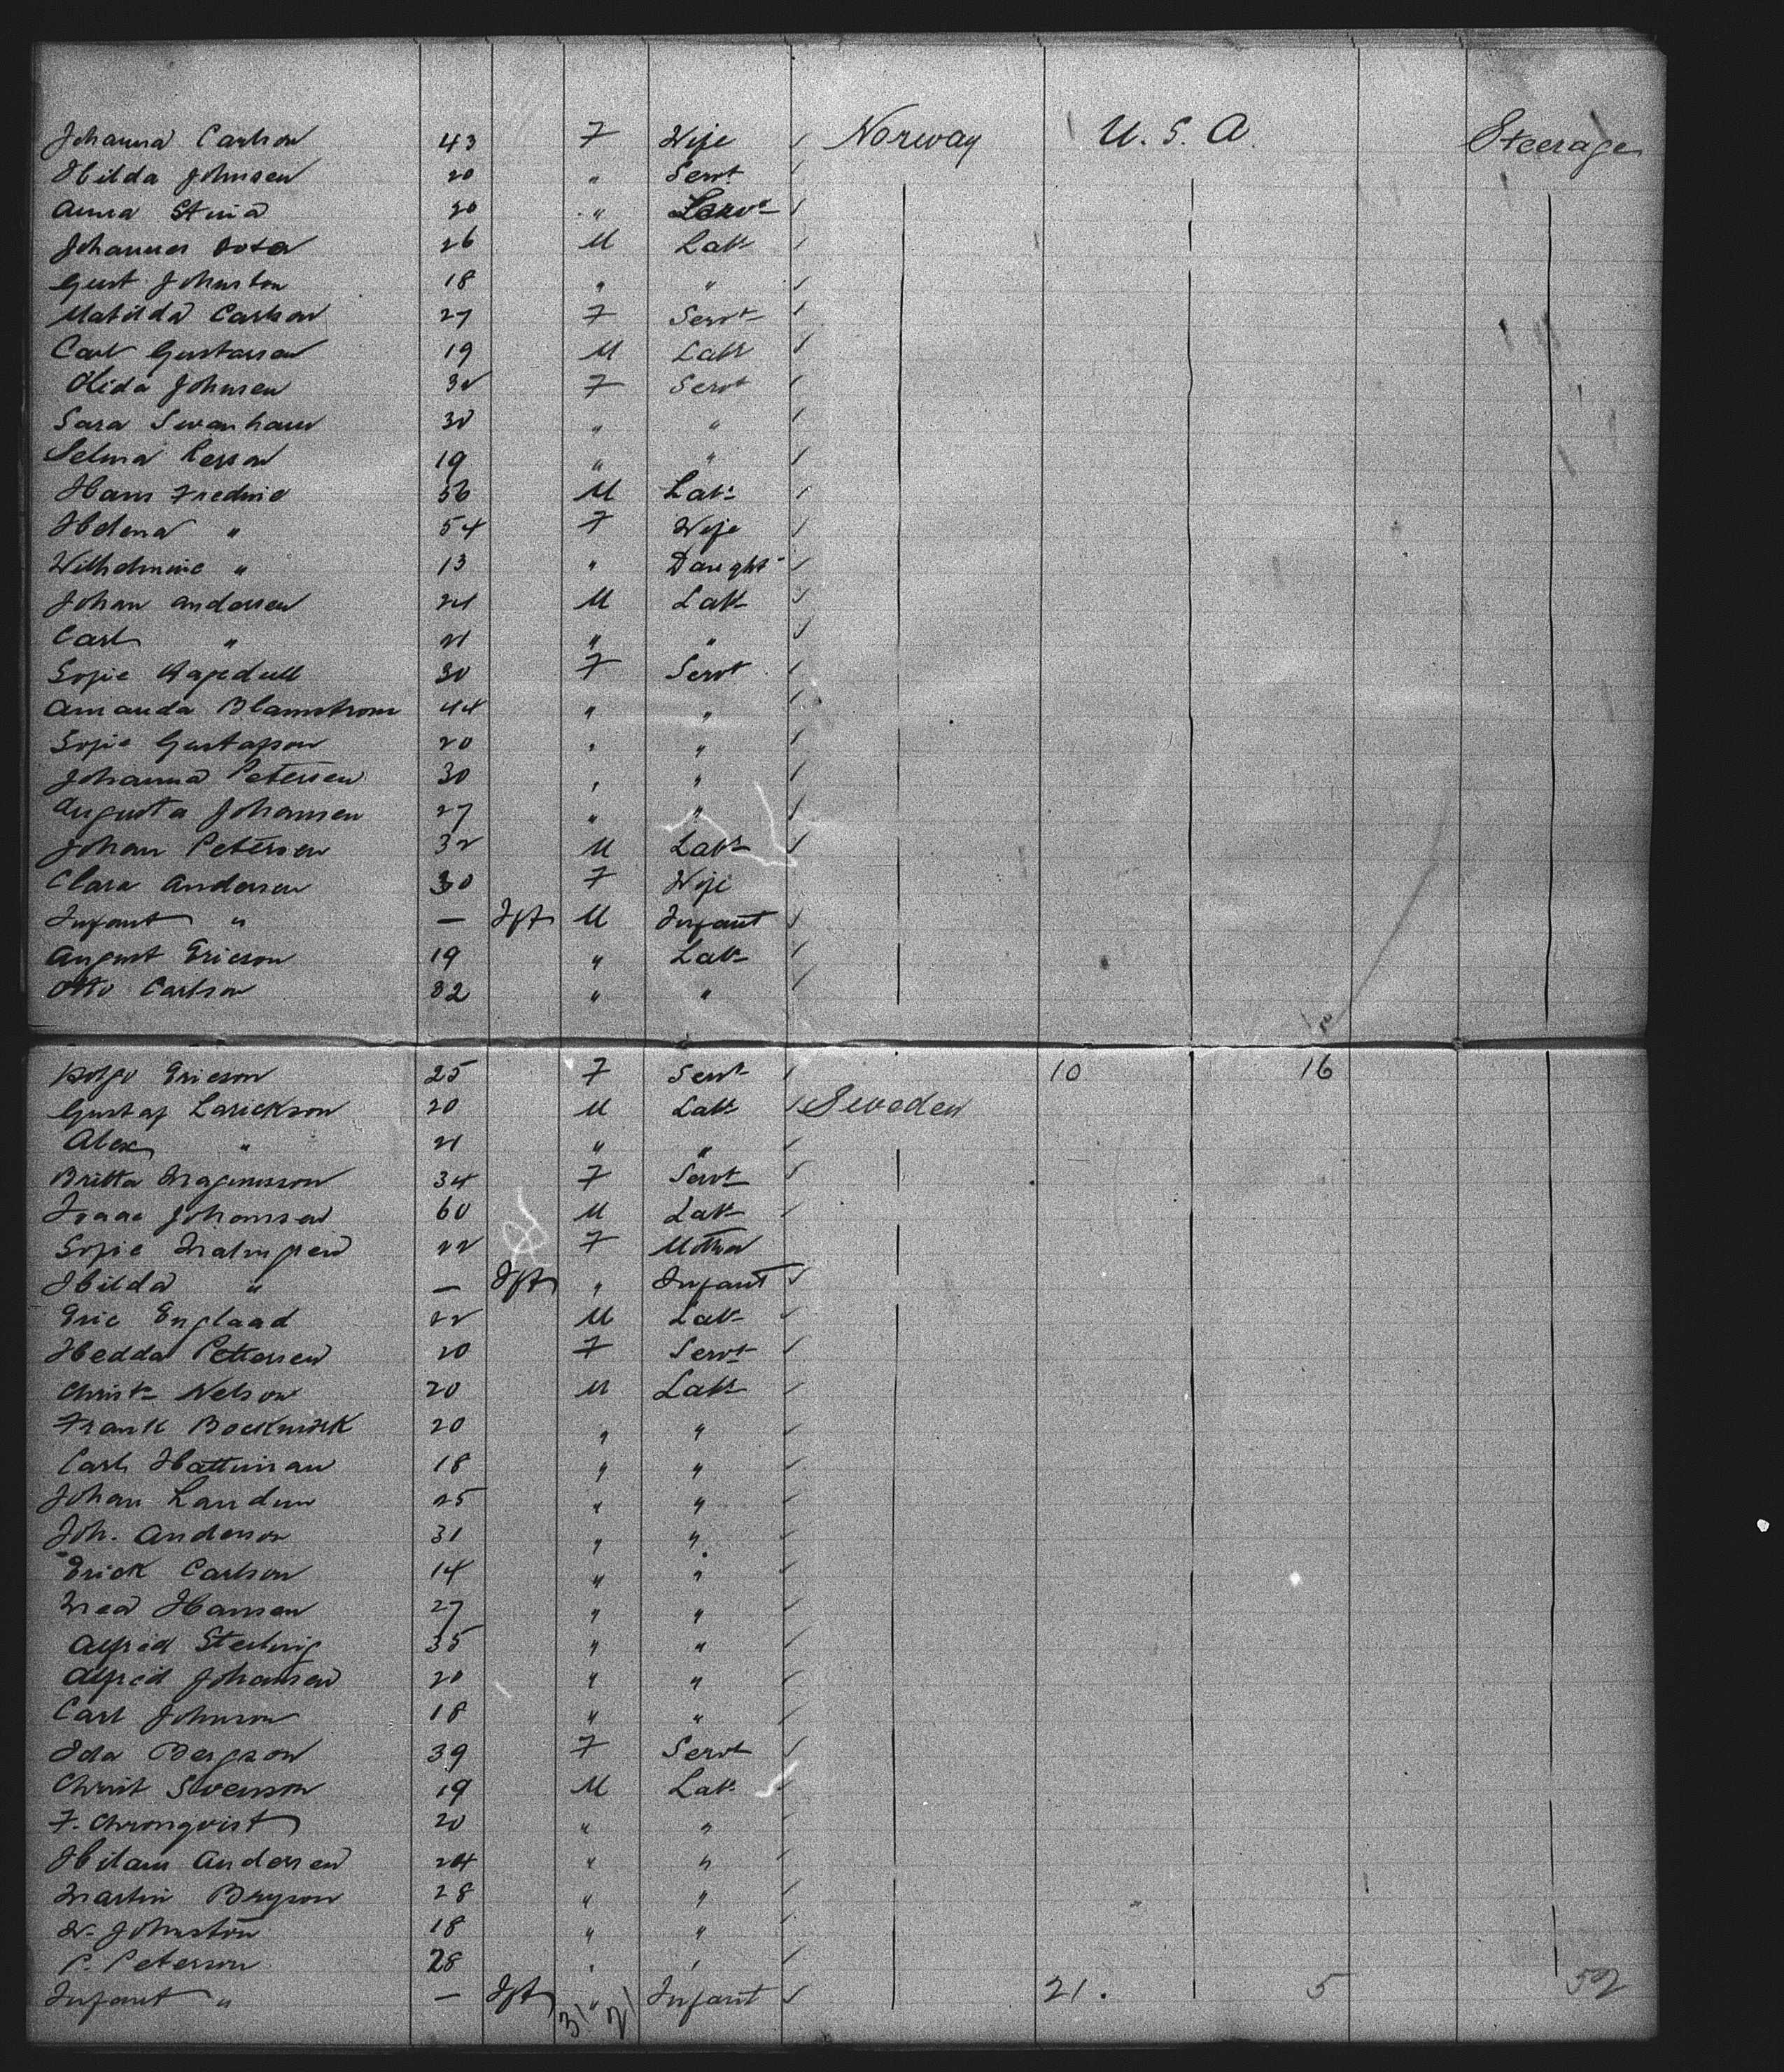 Johanna Carlson 43 F Wife Norway U. S. A. Steerage
Hilda Johnsen 20 " Servt
Anna Stina 20 " Servt
Johannes 26 M Labr
Gust Johnston 18 " "
Matilda Carlson 27 F Servt
Carl Gustavson 19 M Labr
Olida Johnsen 32 F Servt
Sara Swanhaus 30 " "
Selma 19 " "
Hans Fredric 56 M Labr
Helena " 54 F Wife
Wilhelmine " 13 " Daught
Johan Andersen 21 M Labr
Carl " 21 " "
Sofie 30 F Servt
Amanda Blamstrom 44 " "
Sofie Gustafson 20 " "
Johanna Petersen 30 " "
Augusta Johansen 27 " "
Johan Petersen 32 M Labr
Clara Andersen 30 F Wife
Infant " — Ift M Infant
August Ericson 19 " Labr
Otto Carlson 82 " "
Ericson 25 F Servt 10 16
Gustaf Larickson 20 M Labr Sweden
Alex " 21 " "
Britta Magnusson 34 F Servt
Isaac Johansen 60 M Labr
Sofie 22 F Mother
Hilda " — Ift " Infant
Eric Englaad 22 M Labr
Hedda Pettersen 20 F Servt
Christn Nelson 20 M Labr
Frank 20 " "
Carl Hattunan 18 " "
Johan Landin 25 " "
Joh. Anderson 31 " "
Erick Carlson 14 " "
Hansen 27 " "
Alfred Sterling 35 " "
Alfred Johansen 20 " "
Carl Johnson 18 " "
Ida Bergson 39 F Servt
Christ Swenson 19 M Labr
F. Chronqvist 20 " "
Andersen 24 " "
Martin Bryson 28 " "
Johnston 18 " "
P. Peterson 28 " "
Infant " — Ift " Infant 21. 5 52
31 21